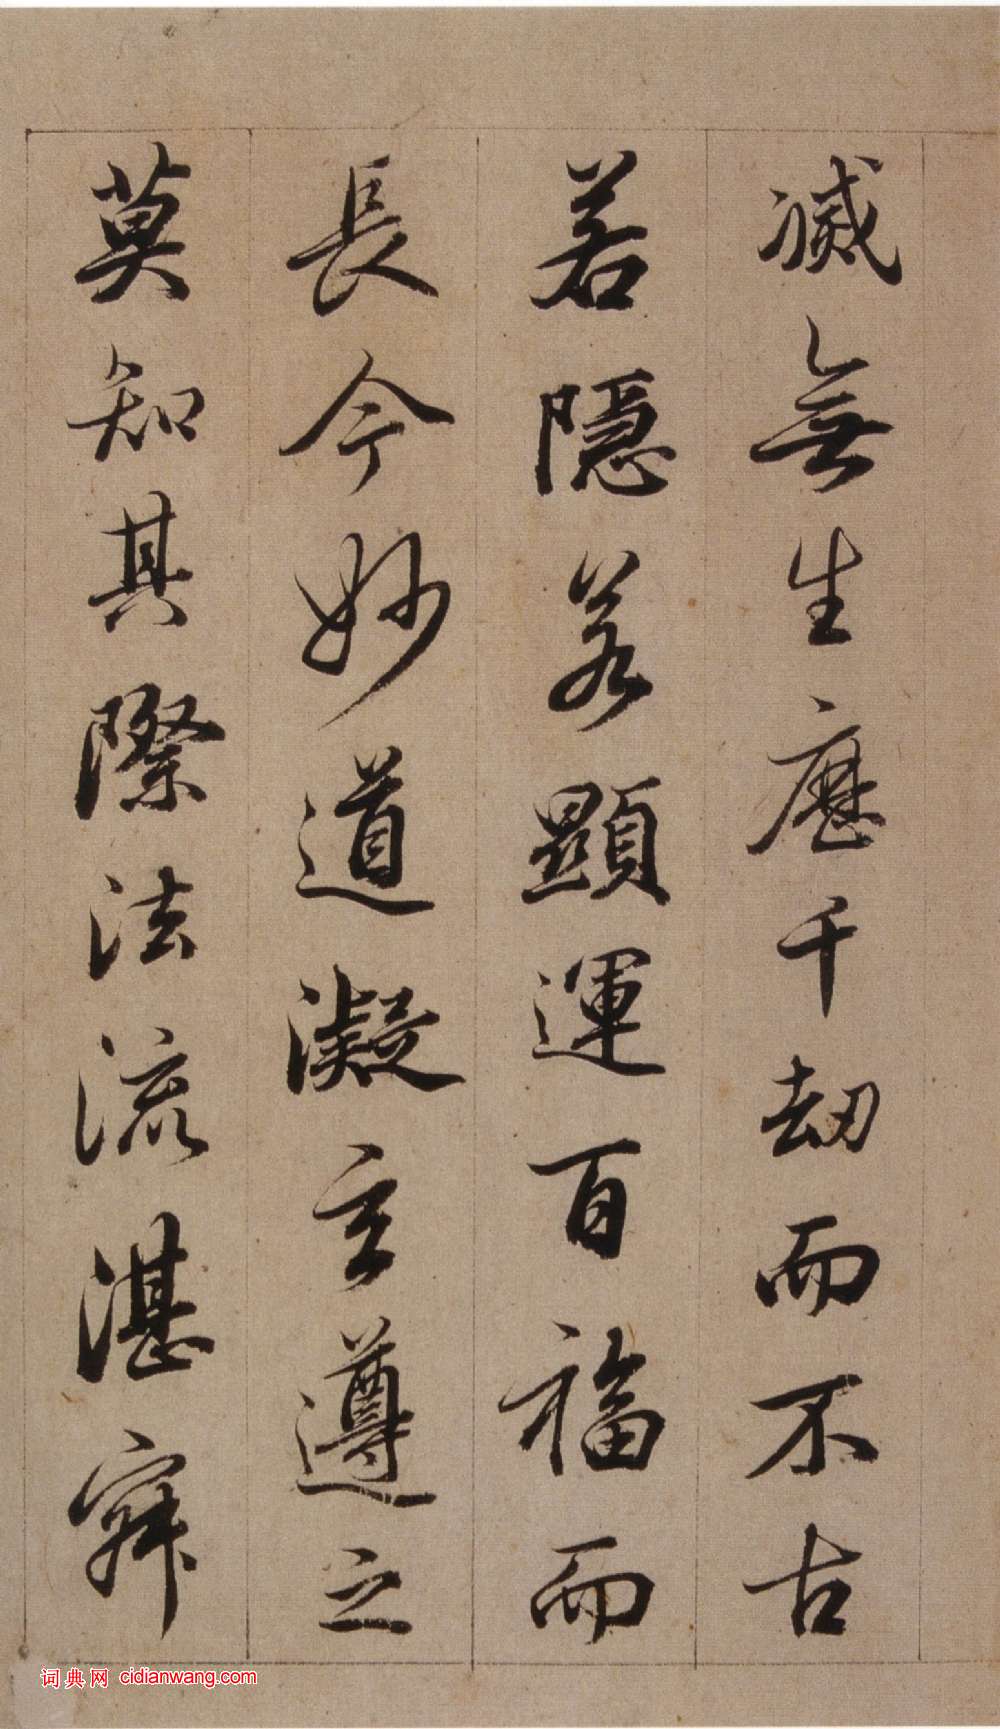 滅無生歷千劫而不古
若隱若顯運百福而
長今妙道凝玄遵之
莫知其際法流湛寂
词典网 cidianwang.com